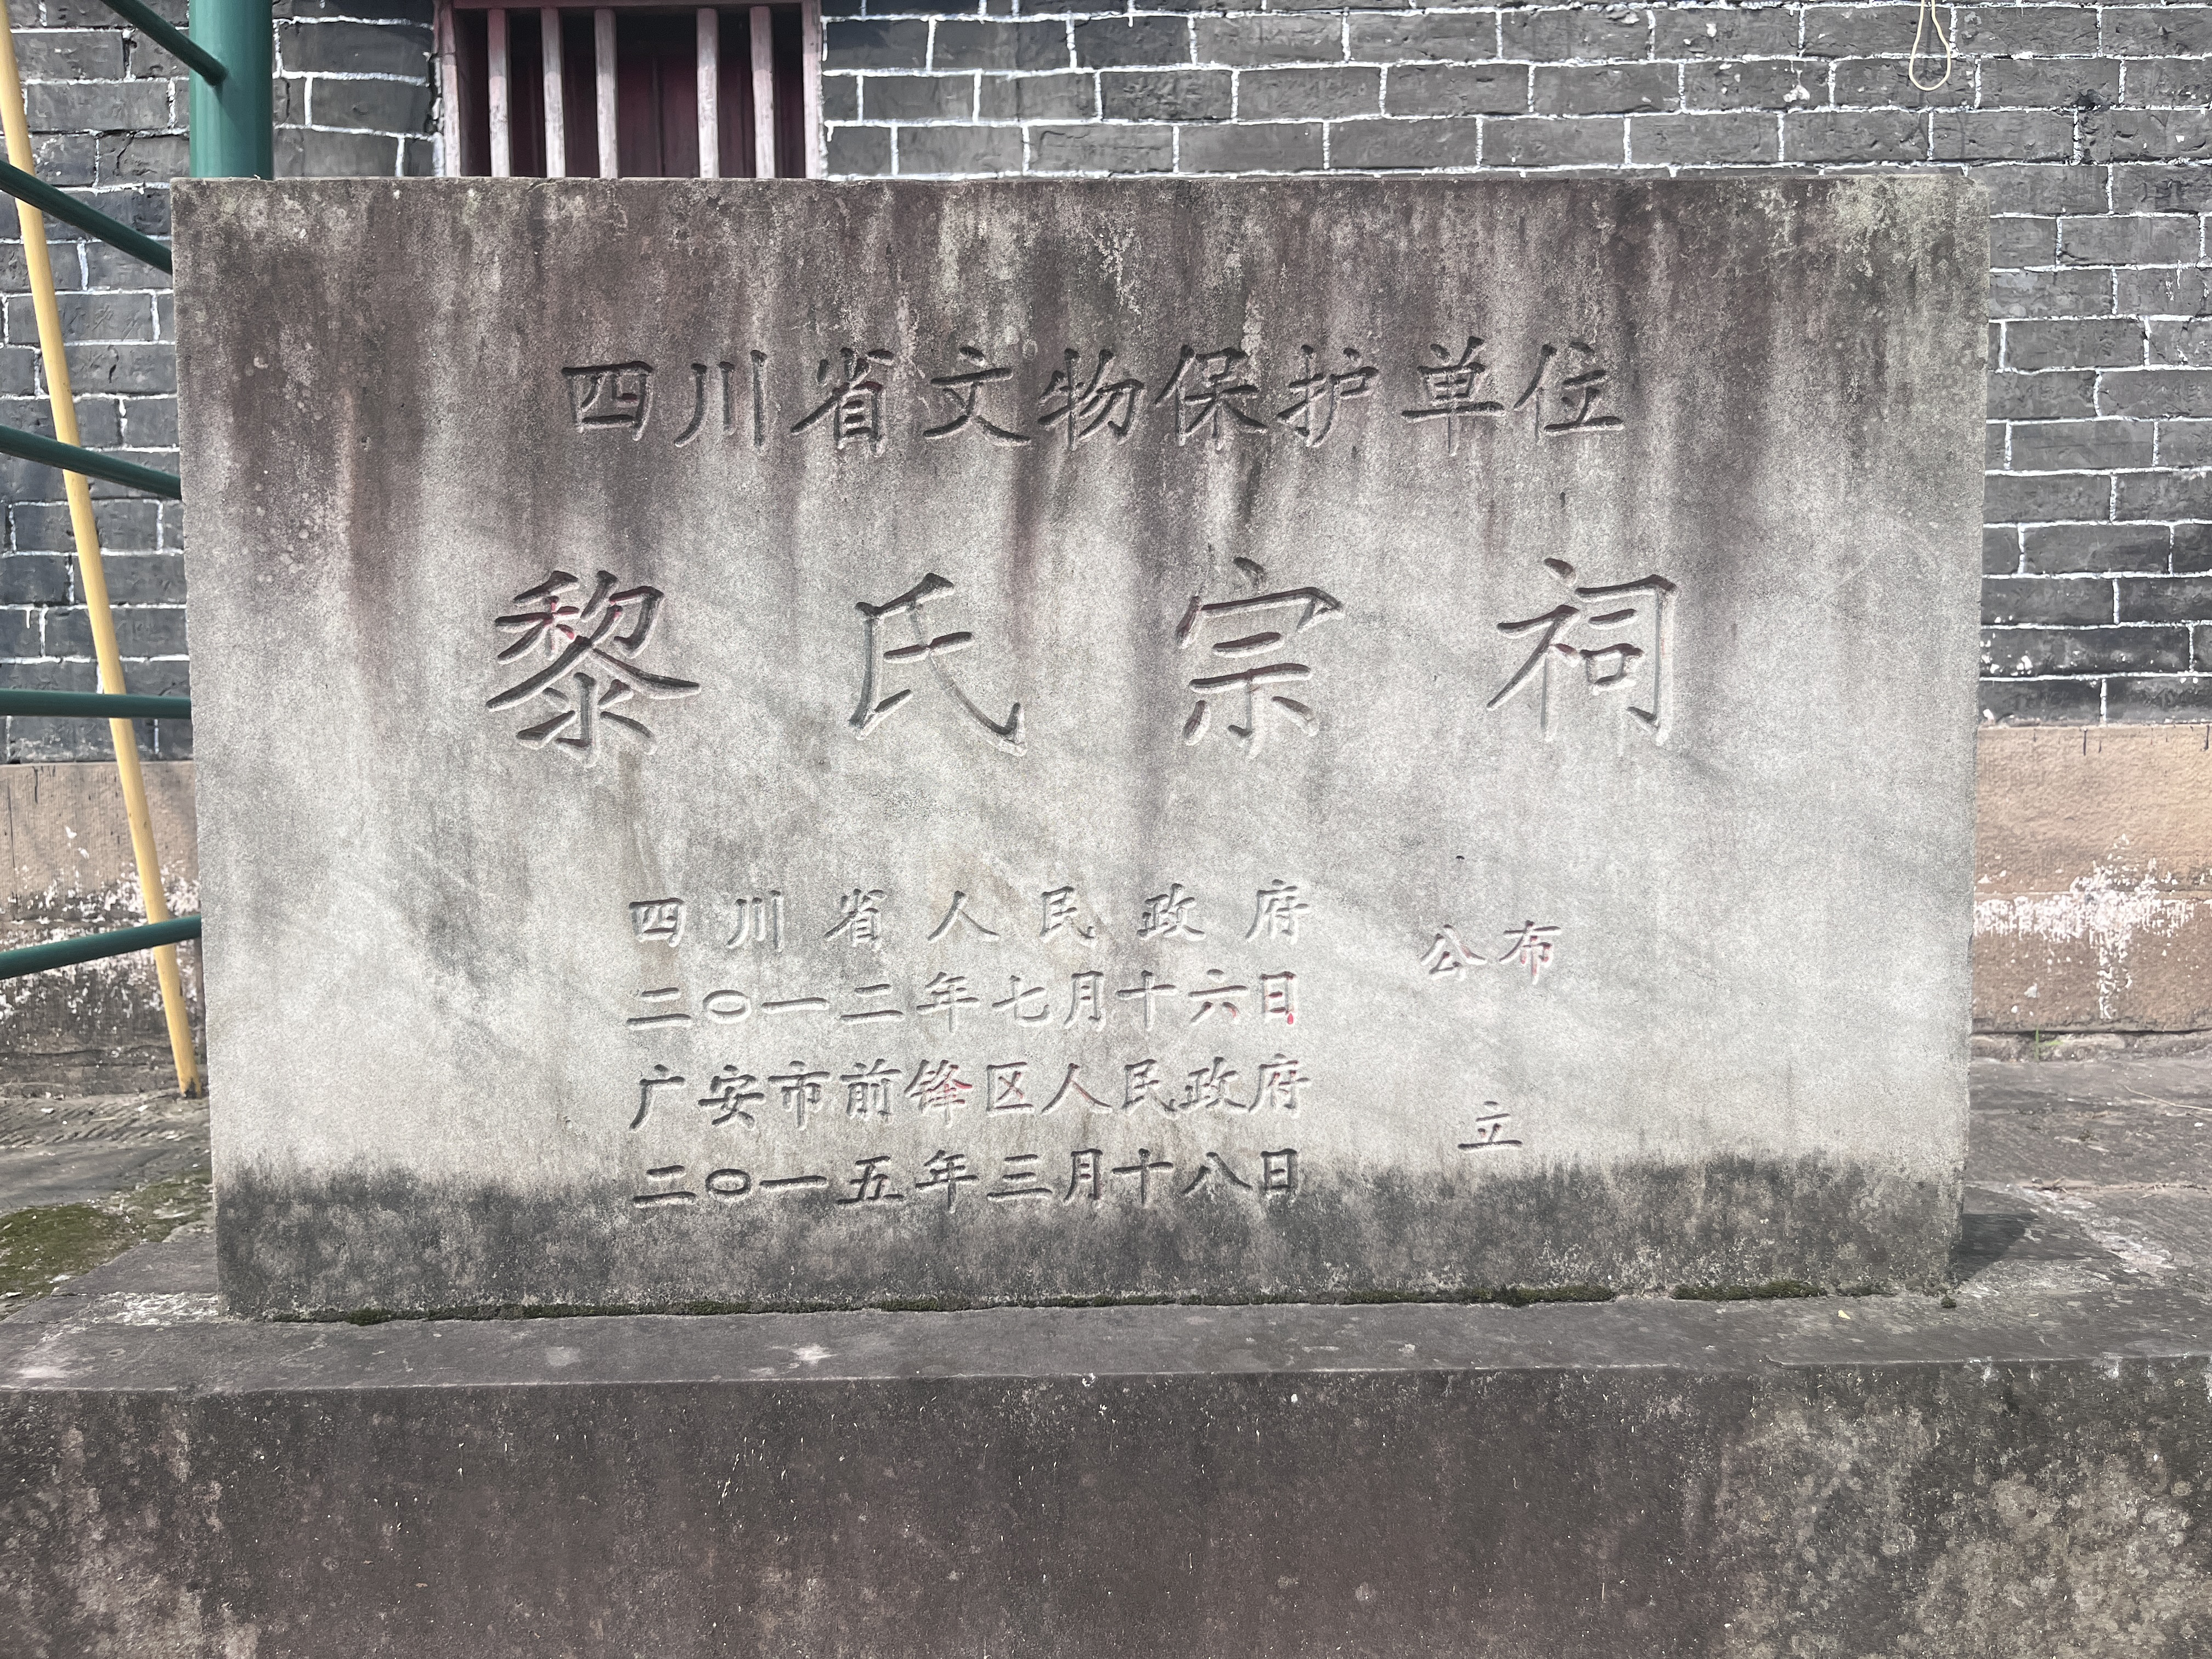 四川省文物保护单位
黎氏宗祠
四川省人民政府
二〇一二年七月十六日
公布
广安市前锋区人民政府
二〇一五年三月十八日
立